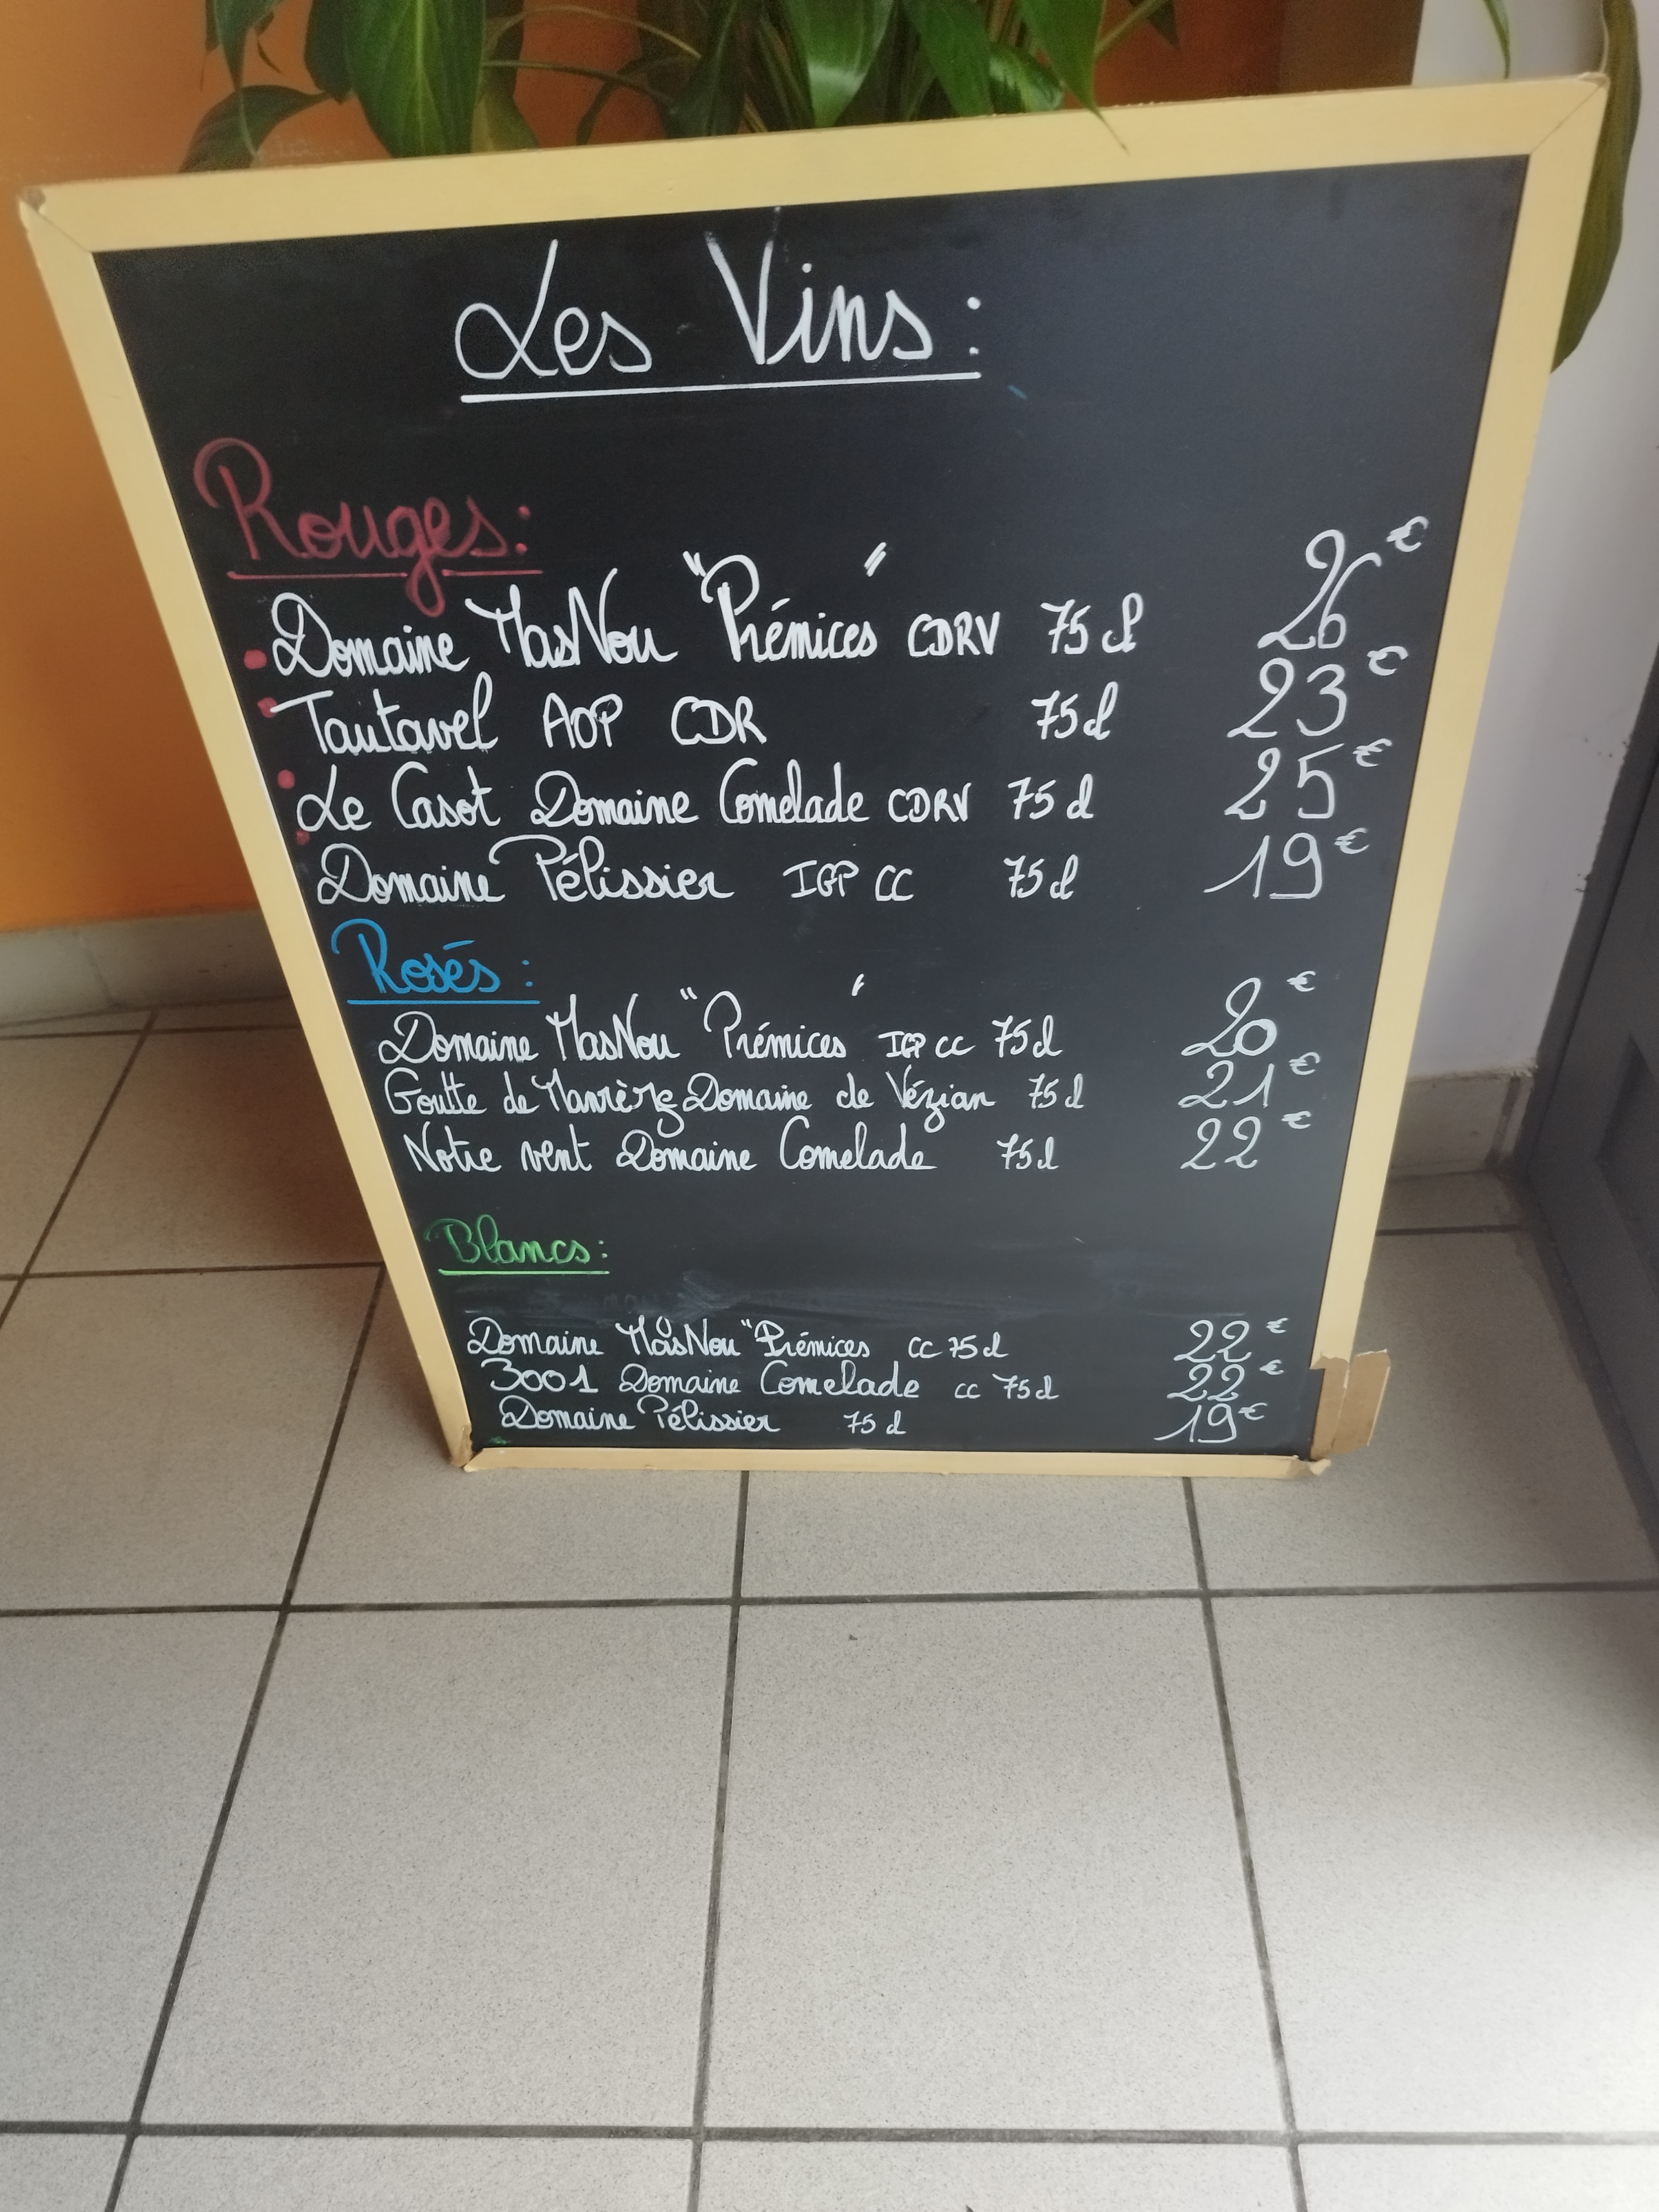 Les Vins :
Rouges :
Domaine MasNou "Prémices" CDRV 75 cl 26 €
Tautavel AOP CDR 75 cl 23 €
Le Casot Domaine Comelade CDRV 75 cl 25 €
Domaine Pélissier IGP CC 75 cl 19 €
Rosés :
Domaine MasNou "Prémices" IGP CC 75 cl 20 €
Goutte de Domaine de Vézian 75 cl 21 €
Notre vent Domaine Comelade 75 cl 22 €
Blancs :
Domaine MasNou "Prémices CC 75 cl 22 €
3001 Domaine Comelade CC 75 cl 22 €
Domaine Pélissier 75 cl 19 €